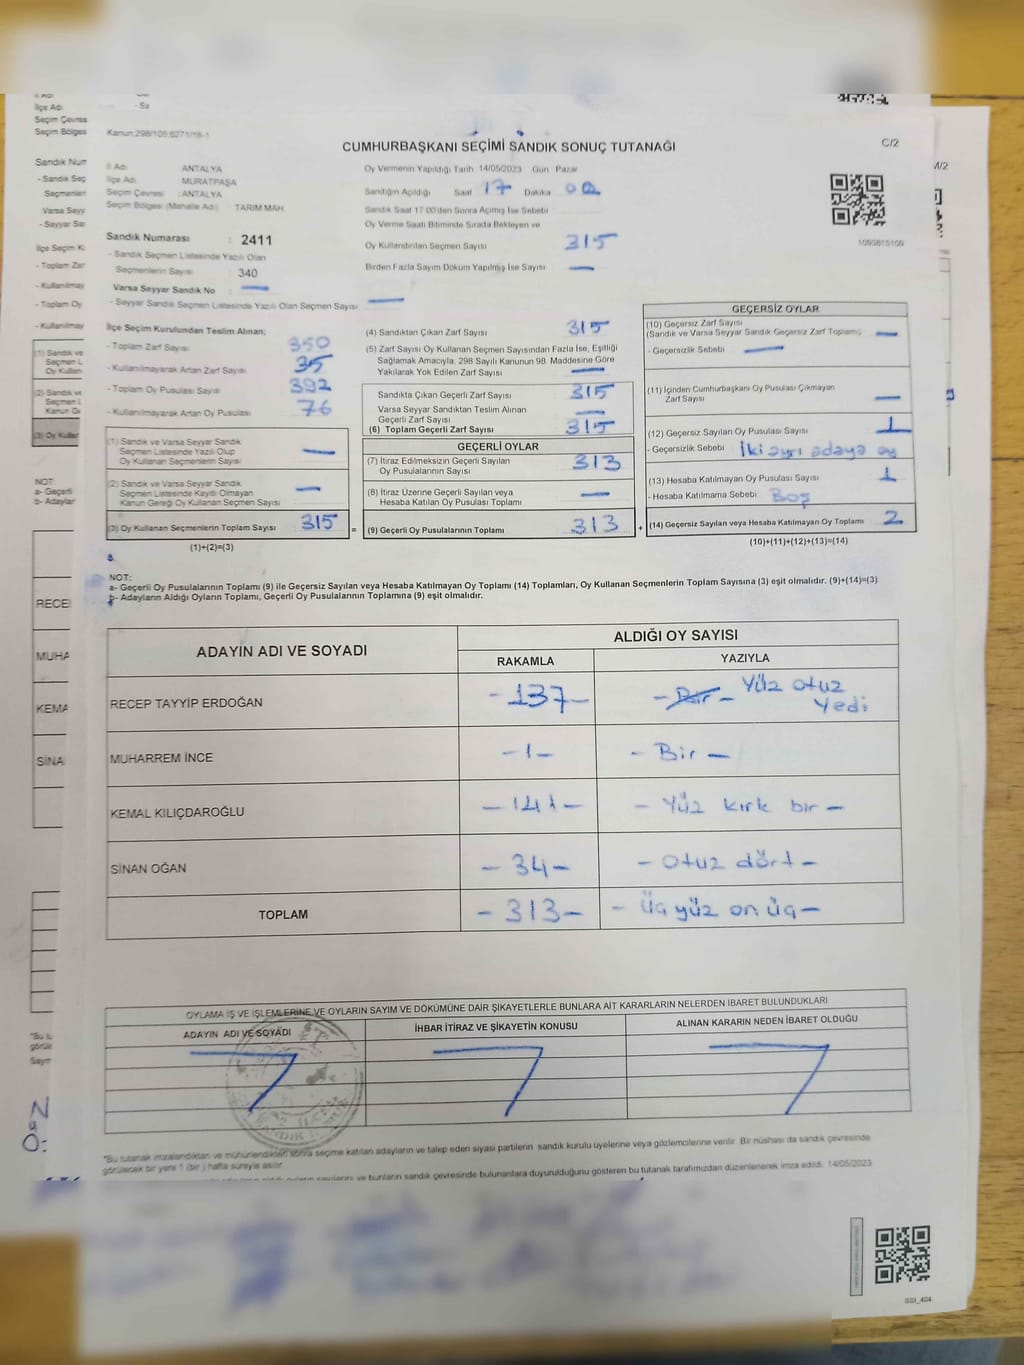 Kanun:298/105;6271/18-1
CUMHURBAŞKANI SEÇİMİ SANDIK SONUÇ TUTANAĞI
C/2
İl Adı : ANTALYA
İlçe Adı : MURATPAŞA
Seçim Çevresi : ANTALYA
Seçim Bölgesi (Mahalle Adı) : TARIM MAH
Sandık Numarası : 2411
- Sandık Seçmen Listesinde Yazılı Olan
Seçmenlerin Sayısı : 340
Varsa Seyyar Sandık No : —
- Seyyar Sandık Seçmen Listesinde Yazılı Olan Seçmen Sayısı —
Oy Vermenin Yapıldığı Tarih 14/05/2023 Gün Pazar
Sandığın Açıldığı Saat 17 Dakika 00
Sandık Saat 17:00'den Sonra Açılmış İse Sebebi
Oy Verme Saati Bitiminde Sırada Bekleyen ve
Oy Kullandırılan Seçmen Sayısı 315
Birden Fazla Sayım Döküm Yapılmış İse Sayısı —
1093815109
İlçe Seçim Kurulundan Teslim Alınan;
- Toplam Zarf Sayısı 350
- Kullanılmayarak Artan Zarf Sayısı 35
- Toplam Oy Pusulası Sayısı 392
- Kullanılmayarak Artan Oy Pusulası 76
(1) Sandık ve Varsa Seyyar Sandık
Seçmen Listesinde Yazılı Olup
Oy Kullanan Seçmenlerin Sayısı —
(2) Sandık ve Varsa Seyyar Sandık
Seçmen Listesinde Kayıtlı Olmayan
Kanun Gereği Oy Kullanan Seçmen Sayısı —
(3) Oy Kullanan Seçmenlerin Toplam Sayısı 315 =
(1)+(2)=(3)
(4) Sandıktan Çıkan Zarf Sayısı 315
(5) Zarf Sayısı Oy Kullanan Seçmen Sayısından Fazla İse, Eşitliği
Sağlamak Amacıyla, 298 Sayılı Kanunun 98. Maddesine Göre
Yakılarak Yok Edilen Zarf Sayısı —
Sandıkta Çıkan Geçerli Zarf Sayısı 315
Varsa Seyyar Sandıktan Teslim Alınan
Geçerli Zarf Sayısı —
(6) Toplam Geçerli Zarf Sayısı 315
GEÇERLİ OYLAR
(7) İtiraz Edilmeksizin Geçerli Sayılan
Oy Pusulalarının Sayısı 313
(8) İtiraz Üzerine Geçerli Sayılan veya
Hesaba Katılan Oy Pusulası Toplamı —
(9) Geçerli Oy Pusulalarının Toplamı 313 +
GEÇERSİZ OYLAR
(10) Geçersiz Zarf Sayısı
(Sandık ve Varsa Seyyar Sandık Geçersiz Zarf Toplamı) —
- Geçersizlik Sebebi —
(11) İçinden Cumhurbaşkanı Oy Pusulası Çıkmayan
Zarf Sayısı —
(12) Geçersiz Sayılan Oy Pusulası Sayısı 1
- Geçersizlik Sebebi İki ayrı adaya oy
(13) Hesaba Katılmayan Oy Pusulası Sayısı 1
- Hesaba Katılmama Sebebi Boş
(14) Geçersiz Sayılan veya Hesaba Katılmayan Oy Toplamı 2
(10)+(11)+(12)+(13)=(14)
NOT:
a- Geçerli Oy Pusulalarının Toplamı (9) ile Geçersiz Sayılan veya Hesaba Katılmayan Oy Toplamı (14) Toplamları, Oy Kullanan Seçmenlerin Toplam Sayısına (3) eşit olmalıdır. (9)+(14)=(3)
b- Adayların Aldığı Oyların Toplamı, Geçerli Oy Pusulalarının Toplamına (9) eşit olmalıdır.
ADAYIN ADI VE SOYADI ALDIĞI OY SAYISI
RAKAMLA YAZIYLA
RECEP TAYYİP ERDOĞAN -137- - Bir - Yüz otuz
Yedi
MUHARREM İNCE -1- - Bir -
KEMAL KILIÇDAROĞLU -141- - Yüz kırk bir -
SİNAN OĞAN -34- - otuz dört -
TOPLAM -313- - Üç yüz on üç -
OYLAMA İŞ VE İŞLEMLERİNE VE OYLARIN SAYIM VE DÖKÜMÜNE DAİR ŞİKAYETLERLE BUNLARA AİT KARARLARIN NELERDEN İBARET BULUNDUKLARI
ADAYIN ADI VE SOYADI İHBAR İTİRAZ VE ŞİKAYETİN KONUSU ALINAN KARARIN NEDEN İBARET OLDUĞU
*Bu tutanak imzalandıktan ve mühürlendikten sonra seçime katılan adayların ve talep eden siyasi partilerin sandık kurulu üyelerine veya gözlemcilerine verilir. Bir nüshası da sandık çevresinde
görülecek bir yere 1 (bir) hafta süreyle asılır.
ve bunların sandık çevresinde bulunanlara duyurulduğunu gösteren bu tutanak tarafımızdan düzenlenerek imza edildi. 14/05/2023